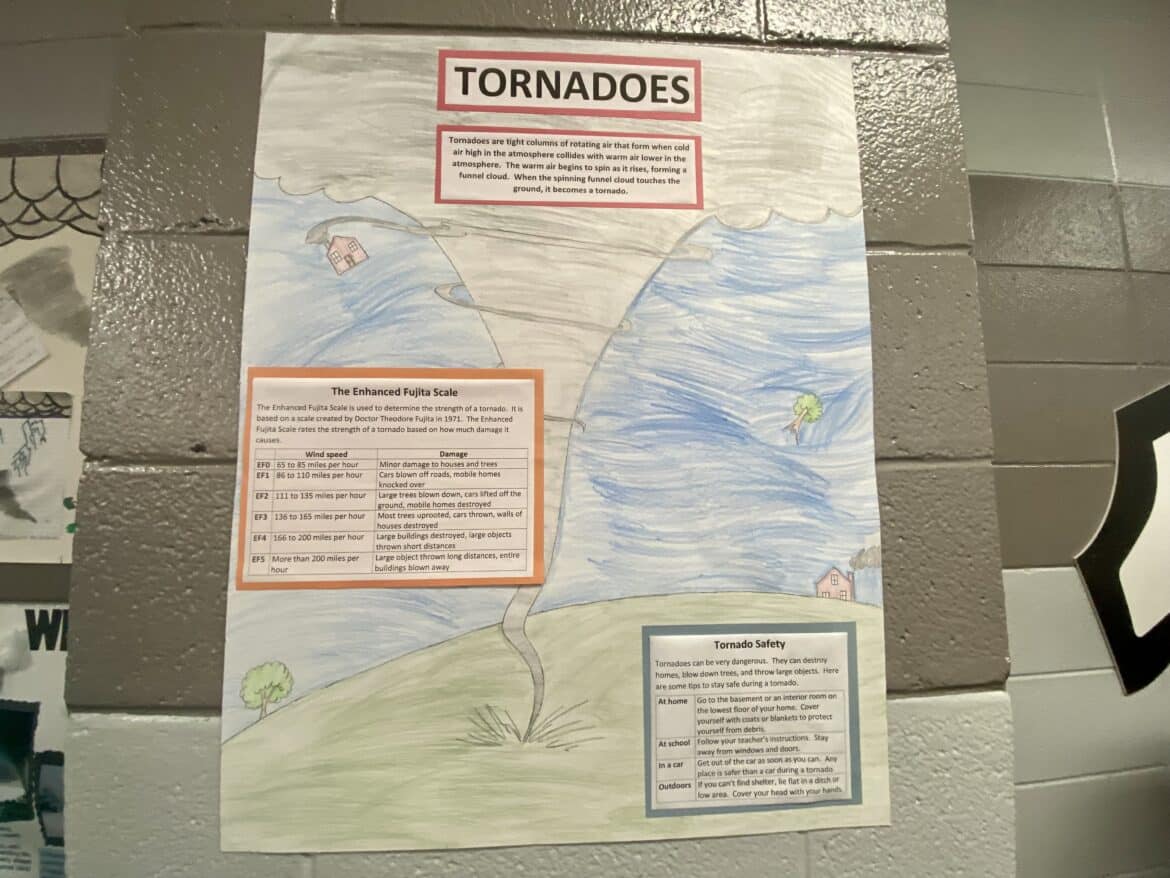 TORNADOES
Tornadoes are tight columns of rotating air that form when cold
air high in the atmosphere collides with warm air lower in the
atmosphere. The warm air begins to spin as it rises, forming a
funnel cloud. When the spinning funnel cloud touches the
ground, it becomes a tornado.
The Enhanced Fujita Scale
The Enhanced Fujita Scale is used to determine the strength of a tornado. It is
based on a scale created by Doctor Theodore Fujita in 1971. The Enhanced
Fujita Scale rates the strength of a tornado based on how much damage it
causes.
Wind speed Damage
EF0 65 to 85 miles per hour Minor damage to houses and trees
EF1 86 to 110 miles per hour Cars blown off roads, mobile homes
knocked over
EF2 111 to 135 miles per hour Large trees blown down, cars lifted off the
ground, mobile homes destroyed
EF3 136 to 165 miles per hour Most trees uprooted, cars thrown, walls of
houses destroyed
EF4 166 to 200 miles per hour Large buildings destroyed, large objects
thrown short distances
EF5 More than 200 miles per Large object thrown long distances, entire
hour buildings blown away
Tornado Safety
Tornadoes can be very dangerous. They can destroy
homes, blow down trees, and throw large objects. Here
are some tips to stay safe during a tornado.
At home Go to the basement or an interior room on
the lowest floor of your home. Cover
yourself with coats or blankets to protect
yourself from debris.
At school Follow your teacher's instructions. Stay
away from windows and doors.
In a car Get out of the car as soon as you can. Any
place is safer than a car during a tornado
Outdoors If you can't find shelter, lie flat in a ditch or
low area. Cover your head with your hands.